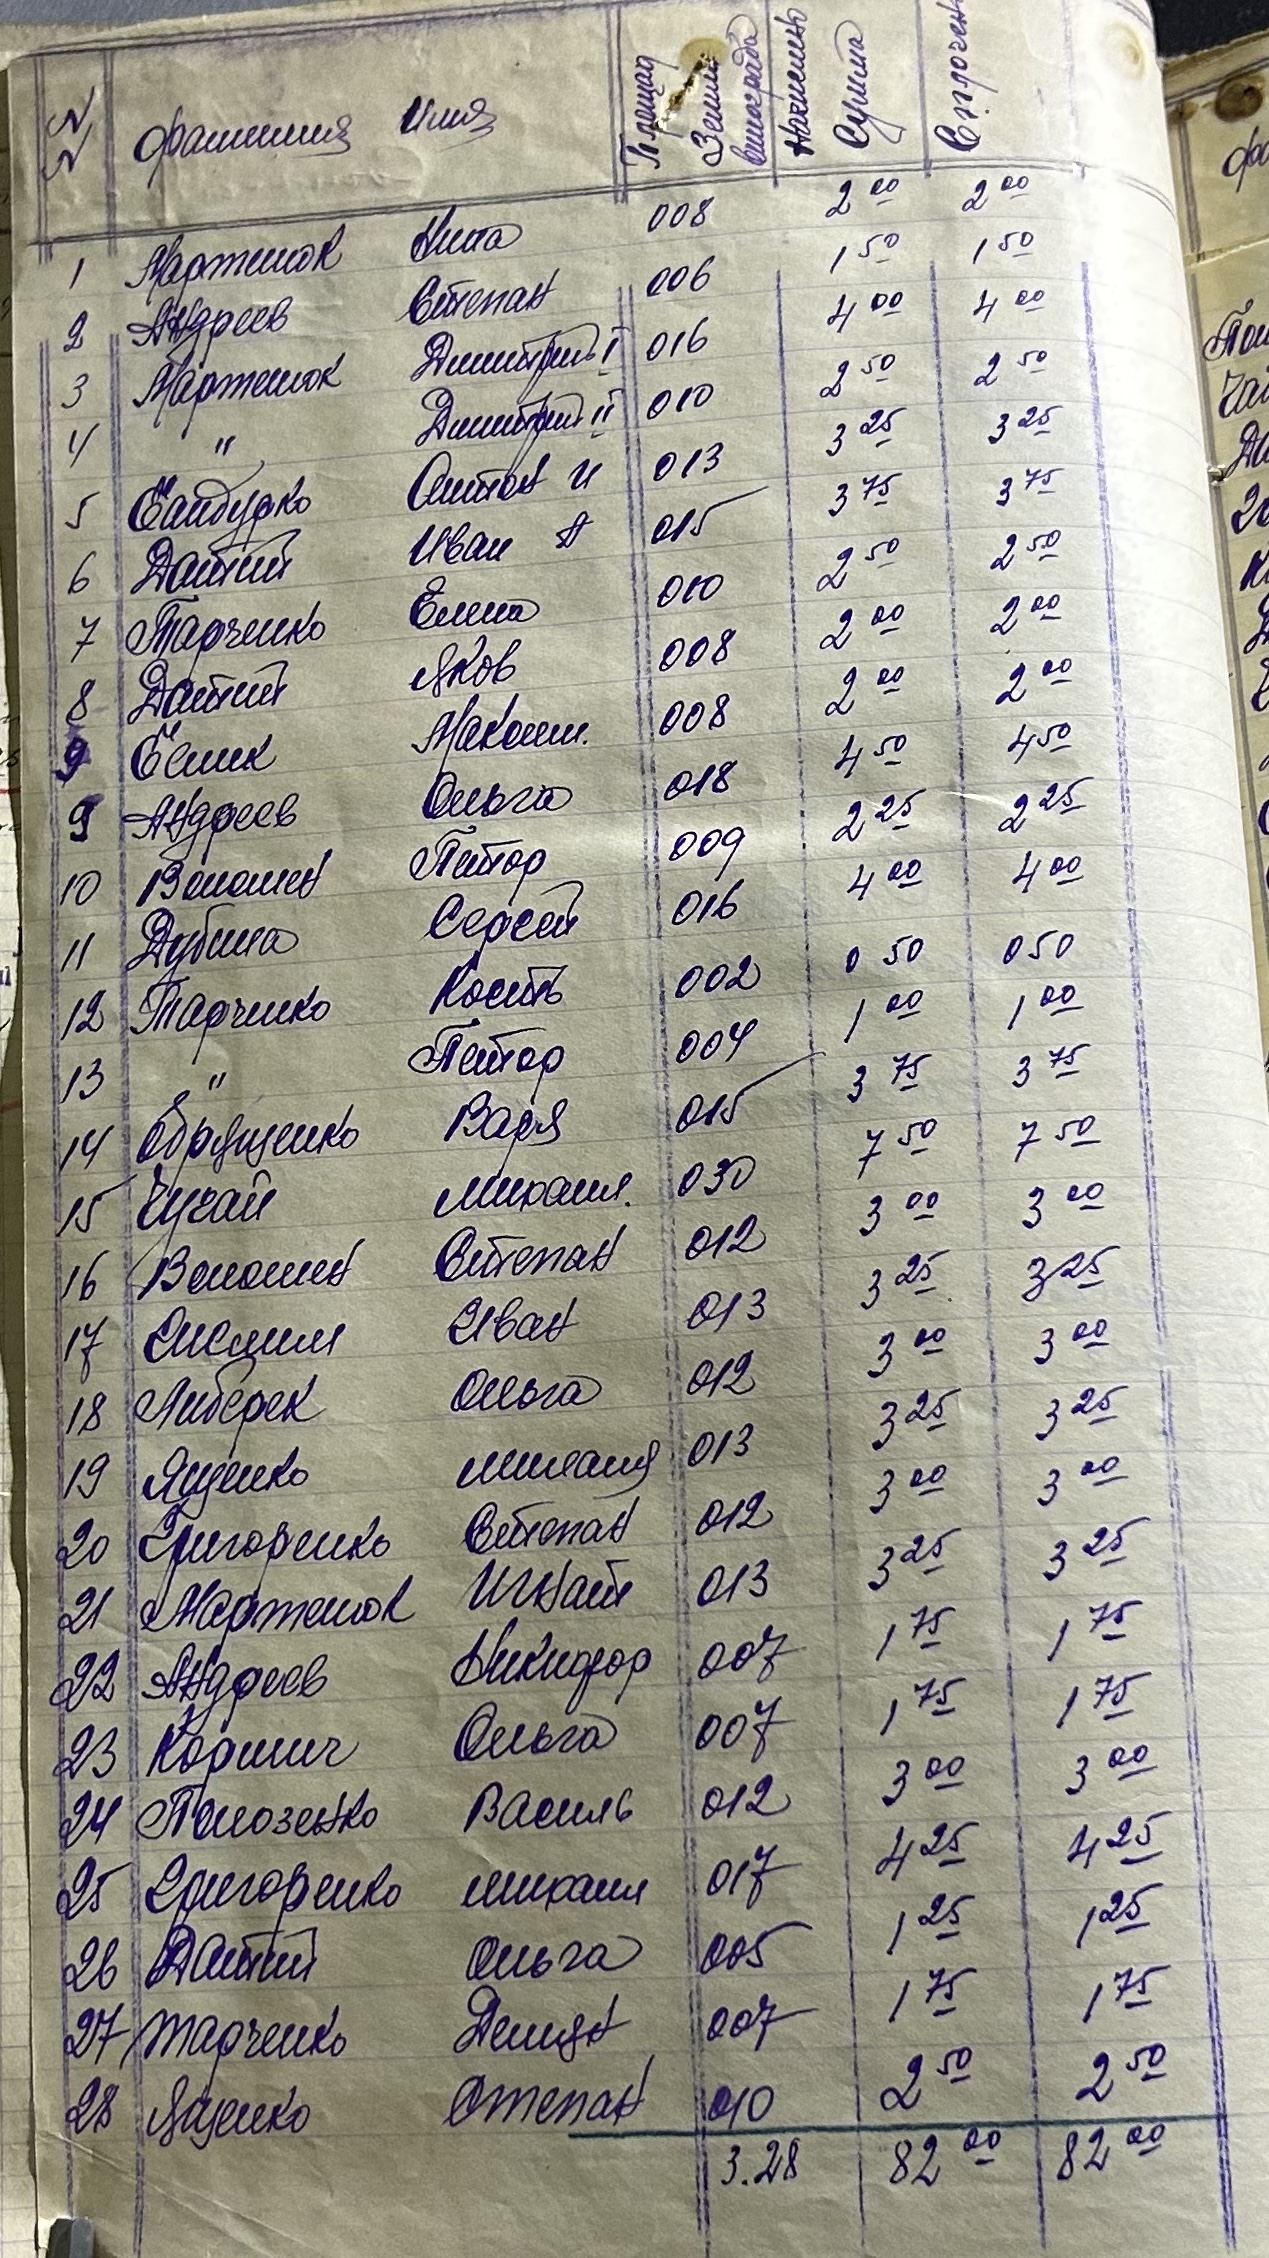 N N Фамилия Имя Площад Земли винограда Начислено Сумма Сплочено
1 Мартенюк Нина 008 2 00 2 00
2 Андреев Степан 006 1 50 1 50
3 Мартенюк Дмитрий I 016 4 00 4 00
4 " Дмитрий II 010 2 50 2 50
5 Антон И 013 3 25 3 25
6 Иван 015 3 75 3 75
7 Тарченко Елена 010 2 50 2 50
8 Яков 008 2 00 2 00
9 Максим. 008 2 00 2 00
9 Андреев Ольга 018 4 50 4 50
10 Волошен Петор 009 2 25 2 25
11 Дубина Сергей 016 4 00 4 00
12 Тарченко Кость 002 0 50 0 50
13 " Петор 004 1 00 1 00
14 Обрященко Вася 015 3 75 3 75
15 Чучай михаил. 030 7 50 7 50
16 Волошен Степан 012 3 00 3 00
17 Иван 013 3 25 3 25
18 Либерек Ольга 012 3 00 3 00
19 Яценко михаил 013 3 25 3 25
20 Григоренко Степан 012 3 00 3 00
21 Мартенюк Игнат 013 3 25 3 25
22 Андреев Никифор 007 1 75 1 75
23 Ольга 007 1 75 1 75
24 Полозенко Василь 012 3 00 3 00
25 Григоренко михаил 017 4 25 4 25
26 Ольга 005 1 25 1 25
27 тарченко Демян 007 1 75 1 75
28 Яценко Степан 010 2 50 2 50
3.28 82 00 82 00